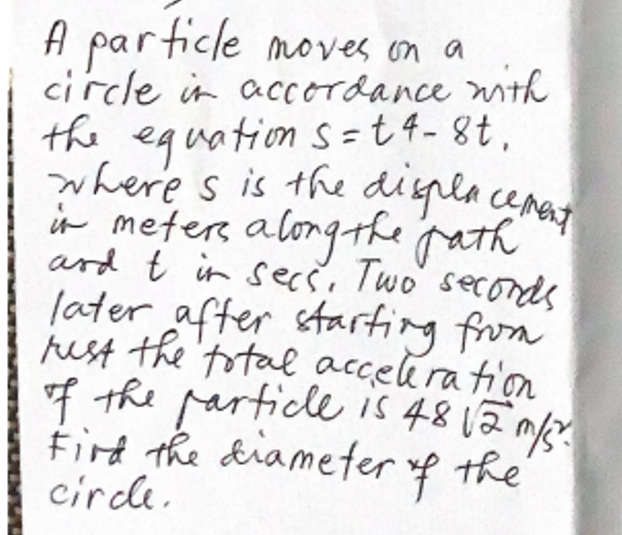 A particle moves on a
circle in accordance with
the equation s = t⁴ - 8t,
where s is the displacement
in meters along the path
and t in secs. Two seconds
later after starting from
rest the total acceleration
of the particle is 48 √2 m/s².
Find the diameter of the
circle.